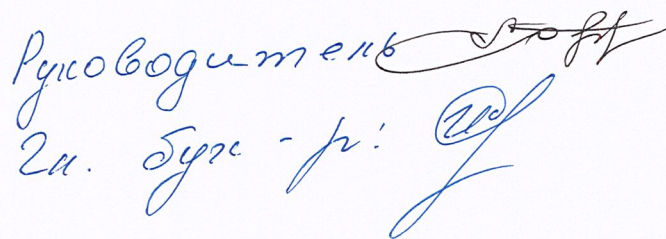 Руководитель
Гл. бух-р: